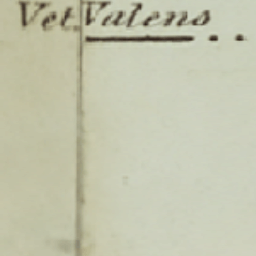 Vet. Valens